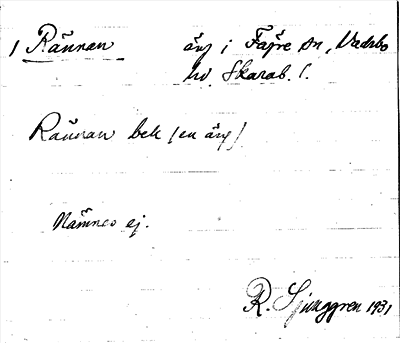 1 Rännan äng i Fägre sn, Vadsbo
hd. Skarab. l.
Rännan bek (en äng)
Nämnes ej.
R. Ljunggren 1931